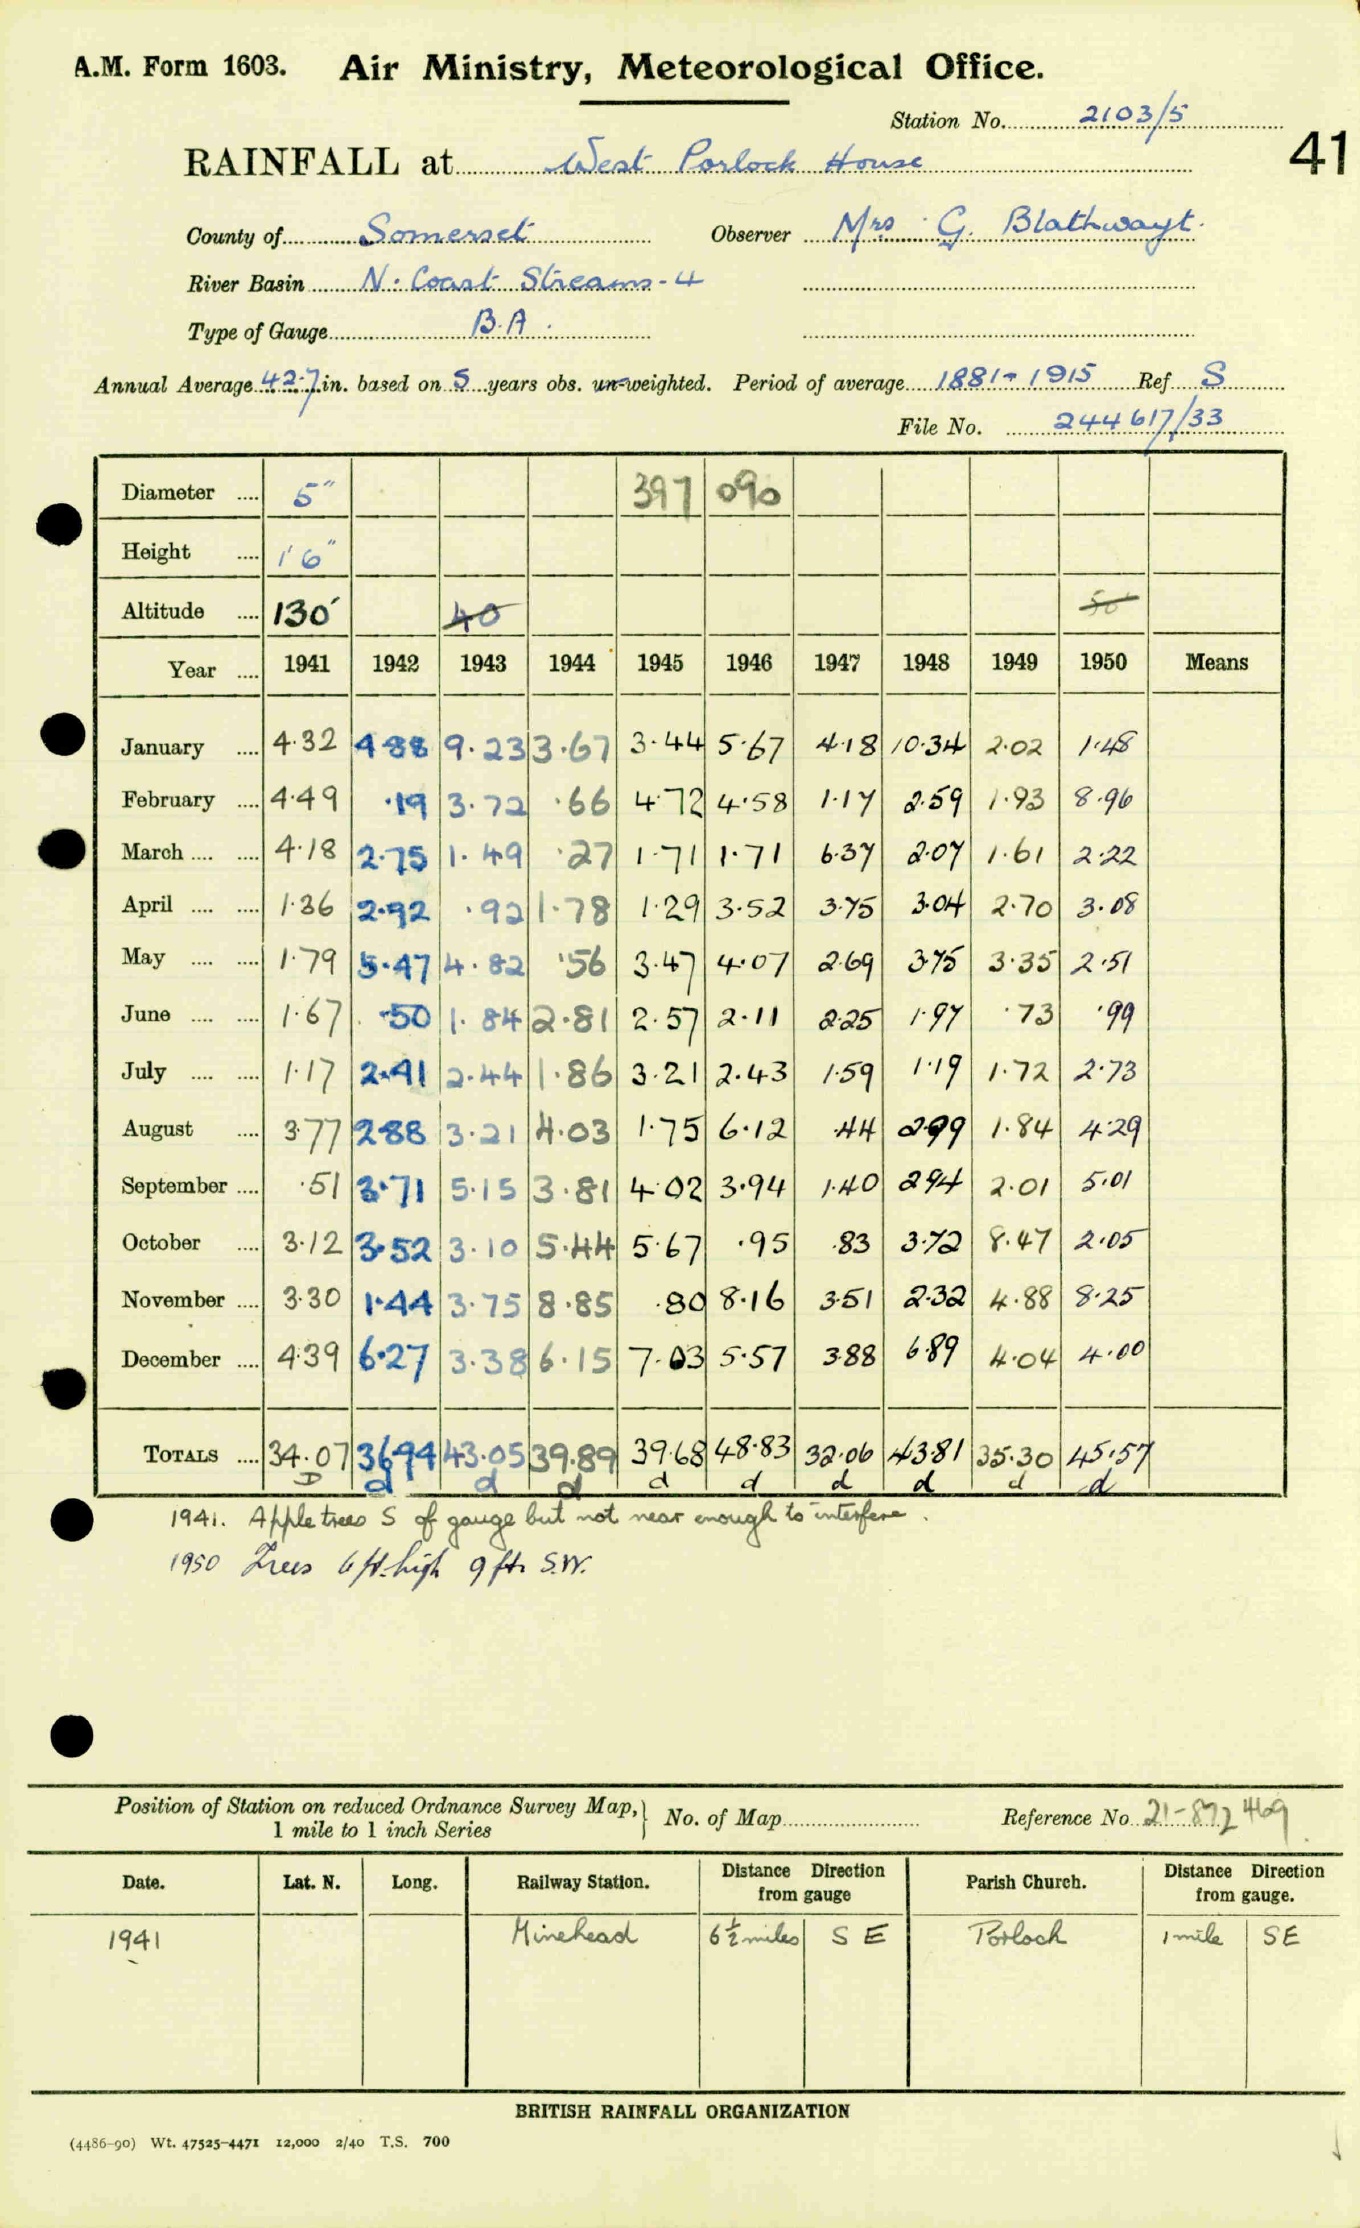 A.M. Form 1603. Air Ministry, Meteorological Office.
Station No. 2103/5
41
RAINFALL at West Porlock House
County of Somerset Observer Mrs G. Blathwayt.
River Basin N. Coast Streams - 4
Type of Gauge B.A.
Annual Average 42.7 in. based on 5 years obs. un-weighted. Period of average 1881-1915 Ref S
File No. 244617/33
Diameter .... 5" 397 090
Height .... 1'6"
Altitude .... 130' 40 50
Year .... 1941 1942 1943 1944 1945 1946 1947 1948 1949 1950 Means
January .... 4.32 4.88 9.23 3.67 3.44 5.67 4.18 10.34 2.02 1.48
February .... 4.49 .19 3.72 .66 4.72 4.58 1.17 2.59 1.93 8.96
March .... .... 4.18 2.75 1.49 .27 1.71 1.71 6.37 2.07 1.61 2.22
April .... .... 1.36 2.92 .92 1.78 1.29 3.52 3.75 3.04 2.70 3.08
May .... .... 1.79 5.47 4.82 .56 3.47 4.07 2.69 3.75 3.35 2.51
June .... .... 1.67 .50 1.84 2.81 2.57 2.11 2.25 1.97 .73 .99
July .... .... 1.17 2.41 2.44 1.86 3.21 2.43 1.59 1.19 1.72 2.73
August .... 3.77 2.88 3.21 4.03 1.75 6.12 .44 2.99 1.84 4.29
September .... .51 3.71 5.15 3.81 4.02 3.94 1.40 2.94 2.01 5.01
October .... 3.12 3.52 3.10 5.44 5.67 .95 .83 3.72 8.47 2.05
November .... 3.30 1.44 3.75 8.85 .80 8.16 3.51 2.32 4.88 8.25
December .... 4.39 6.27 3.38 6.15 7.03 5.57 3.88 6.89 4.04 4.00
TOTALS .... 34.07 36.94 43.05 39.89 39.68 48.83 32.06 43.81 35.30 45.57
D d d d d d d d d d
1941. Apple trees S of gauge but not near enough to interfere.
1950 Trees 6 ft. high 9 ft. S.W.
Position of Station on reduced Ordnance Survey Map, 1 mile to 1 inch Series } No. of Map Reference No. 21-872469
Date. Lat. N. Long. Railway Station. Distance Direction from gauge Parish Church. Distance Direction from gauge.
1941 Minehead 6½ miles S E Porlock 1 mile SE
BRITISH RAINFALL ORGANIZATION
(4486-90) Wt. 47525-4471 12,000 2/40 T.S. 700